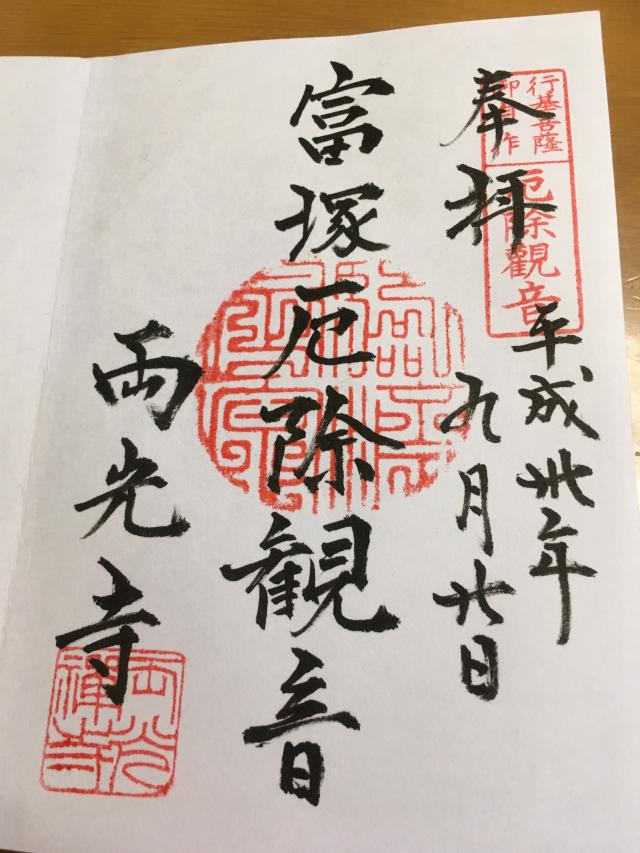 行基菩薩
御自作
厄除觀音
奉拝
平成卅年
九月廿日
富塚厄除観音
両光寺